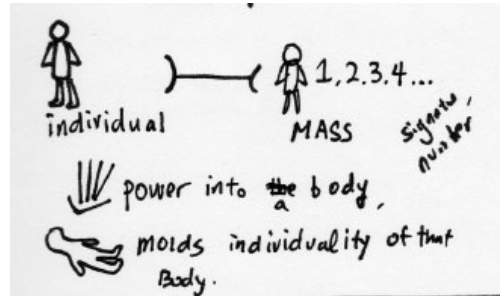 1.2.3.4...
individual
MASS
signatu,
number
power into a body,
molds individuality of that
Body.